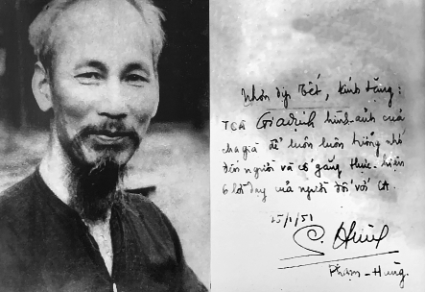 Nhân dịp Tết, kính tặng:
Toà Gia định hình ảnh của
cha già để luôn luôn tưởng nhớ
đến người và cố gắng thực hiện
6 lời dạy của người đối với CA.
25/1/51
Phạm-Hùng.